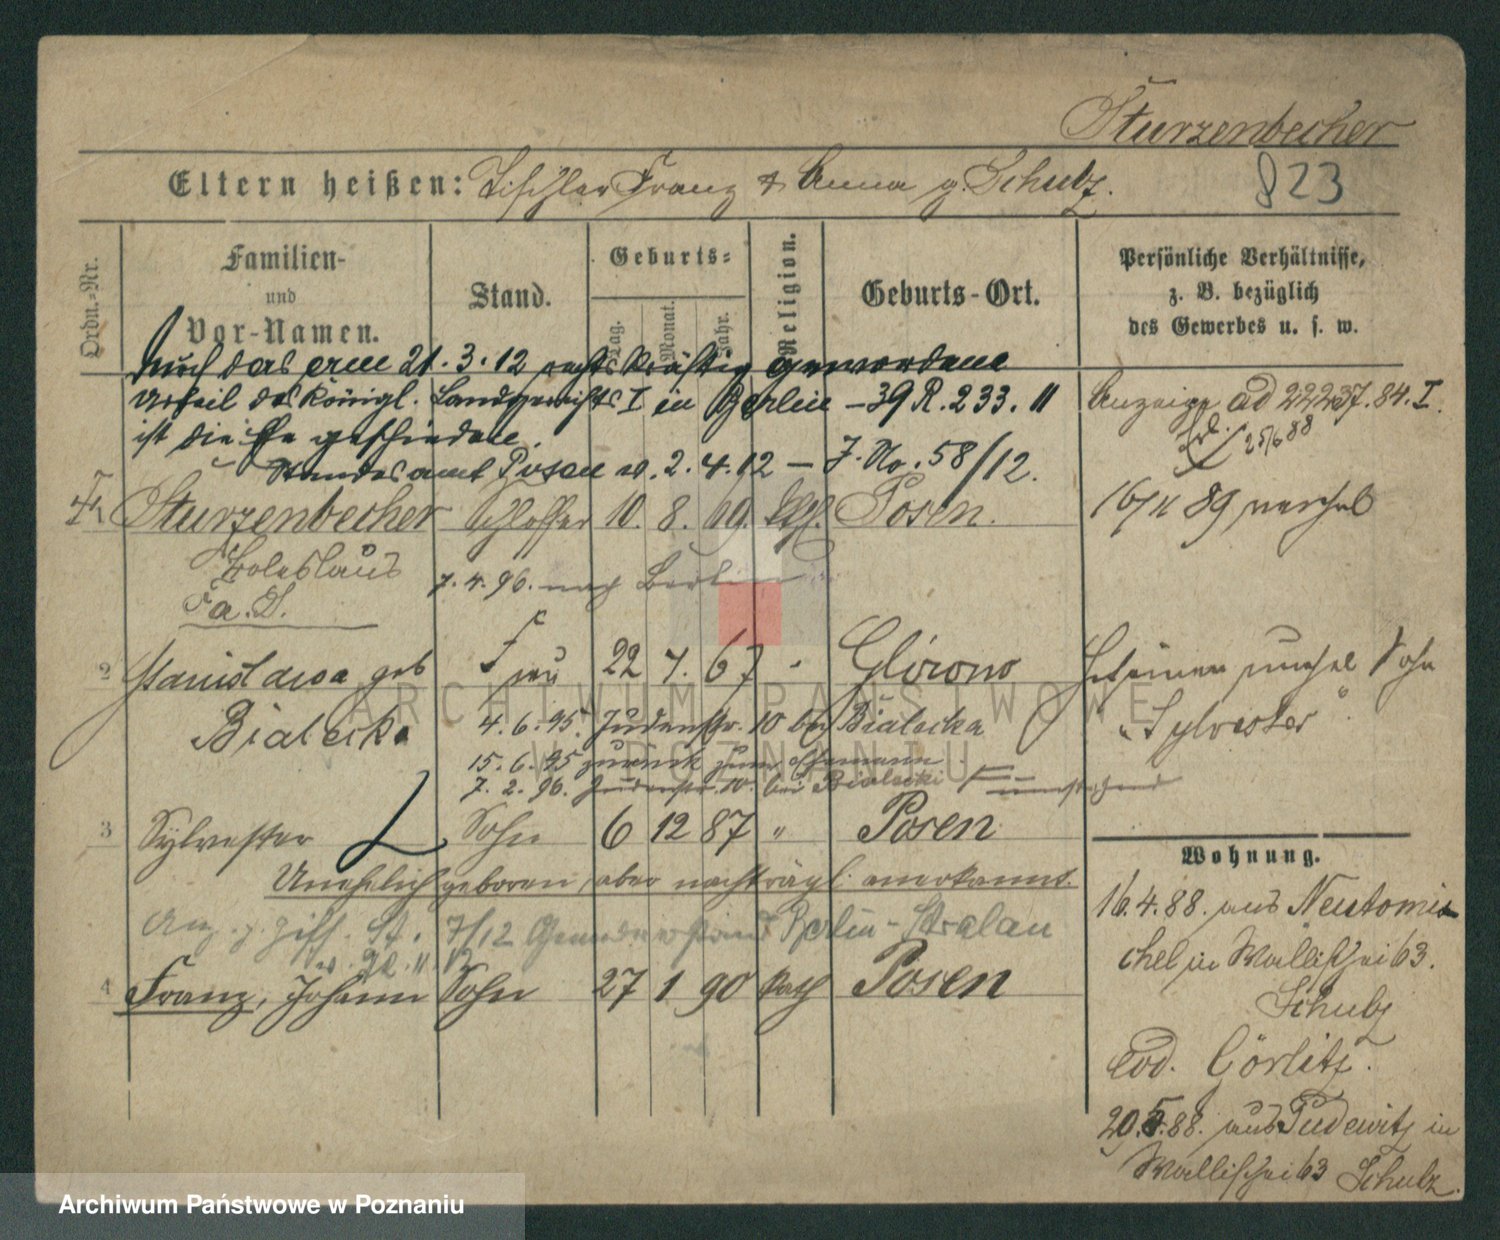 Sturzenbecher
Eltern heißen: Tischler Franz & Anna g. Schulz.
823
Ordn.-Nr.
Familien- und Vor-Namen.
Stand.
Geburts-
Tag.
Monat.
Jahr.
Religion.
Geburts-Ort.
Persönliche Verhältnisse,
z. B. bezüglich
des Gewerbes u. s. w.
Durch das am 21.3.12 rechtskräftig gewordene
Urteil des Königl. Landgerichts I in Berlin – 39 R. 233. 11
ist die Ehe geschieden.
Standesamt Posen 2.4.12 – J. No. 58/12.
Anzeige ad 22237.84.I.
25/6 88
Sturzenbecher Schlosser 10. 8. Posen.
16/11 89
Boleslaus
7.4.96. nach Berlin
2 Stanislawa geb Frau 22 4. 67 " Glówno
Sohn
Bialecka
4.6.95. Judenstr. 10 bei Bialecka
"Sylvester"
15.6.95 zurück zum Ehemann
7.2.96. Judenstr. 10. bei Bialecki
umstehend
3 Sylvester Sohn 6 12 87 " Posen
Unehelich geboren, aber nachträgl. anerkannt.
7/12 Berlin-Stralau
4 Franz, Johann Sohn 27 1 90 kath Posen
Wohnung.
16.4.88. aus Neutomi-
chel in Wallischei 63.
Schulz
Görlitz.
20.5.88. aus Pudewitz in
Wallischei 63 Schulz.
ARCHIWUM PAŃSTWOWE
W POZNANIU
Archiwum Państwowe w Poznaniu